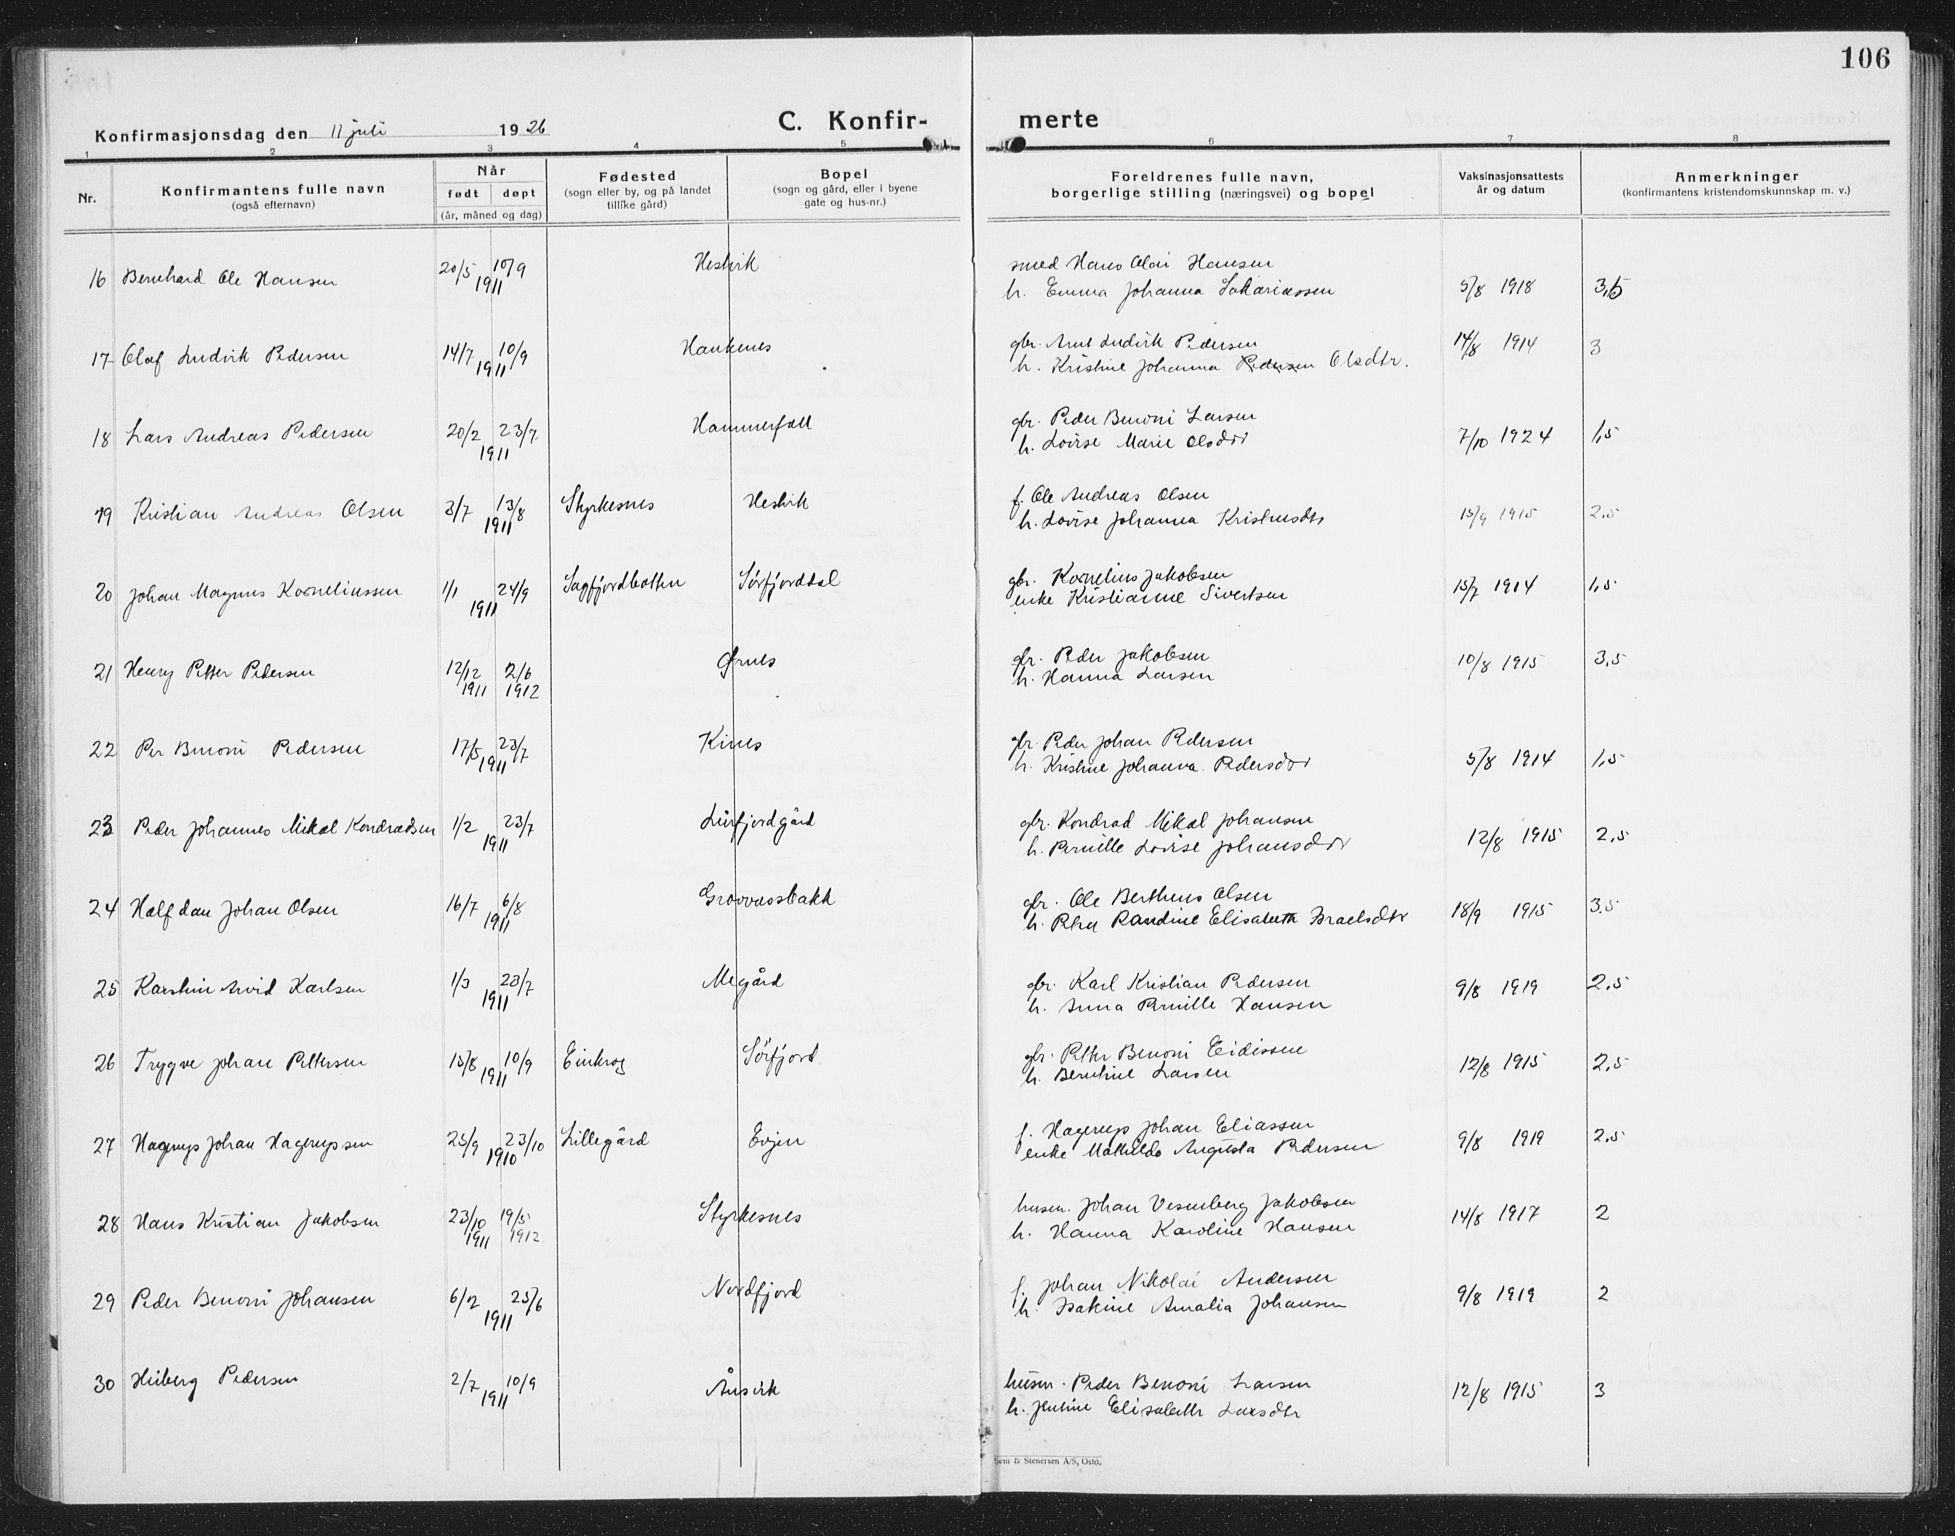 106
Konfirmasjonsdag den 11 juli 1926 C. Konfir- merte
1 2 3 4 5 6 7 8
Nr. Konfirmantens fulle navn (også efternavn) Når født døpt (år, måned og dag) Fødested (sogn eller by, og på landet tillike gård) Bopel (sogn og gård, eller i byene gate og hus-nr.) Foreldrenes fulle navn, borgerlige stilling (næringsvei) og bopel Vaksinasjonsattests år og datum Anmerkninger (konfirmantens kristendomskunnskap m. v.)
16 Bernhard Ole Hansen 20/5 10/9 1911 Hestvik smed Hans Olai Hansen
h. Emma Johanna Sakariassen 5/8 1918 3,5
17 Olaf Ludvik Pedersen 14/7 10/9 1911 Haukenes gbr. Arnt Ludvik Pedersen 14/8 1914 3
h. Kristine Johanna Pedersen Olsdtr.
18 Lars Andreas Pedersen 20/2 23/7 1911 Hammerfall gbr. Peder Benoni Larsen
h. Lovise Marie Olsdtr 7/10 1924 1,5
19 Kristian Andreas Olsen 3/7 13/8 1911 Styrkesnes Hestvik f. Ole Andreas Olsen
h. Lovise Johanna Kristensdtr 15/9 1915 2,5
20 Johan Magnus Korneliussen 1/1 24/9 1911 Sagfjordbotten Sørfjorddal gbr. Kornelius Jakobsen
enke Kristianne Sivertsen 15/7 1914 1,5
21 Henry Petter Pedersen 12/12 1911 2/6 1912 Ørnes gbr. Peder Jakobsen
h. Hanna Larsen 10/8 1915 3,5
22 Per Benoni Pedersen 17/5 23/7 1911 Kines gbr. Peder Johan Pedersen
h. Kristine Johanna Pedersdtr 5/8 1914 1,5
23 Peder Johannes Mikal Kondradsen 1/2 23/7 1911 Leirfjordgård gbr. Kondrad Mikal Johansen
h. Pernille Lovise Johansdtr 12/8 1915 2,5
24 Halfdan Johan Olsen 16/7 6/8 1911 Grovvassbakk gbr. Ole Berthens Olsen
h. Petra Randine Elisabeth Israelsdtr 18/9 1915 3.5
25 Karstein Arvid Karlsen 1/3 23/7 1911 Megård gbr. Karl Kristian Pedersen
h. Anna Pernille Hansen 9/8 1919 2,5
26 Trygve Johan Pettersen 15/8 10/9 1911 Einkrog Sørfjord gbr. Petter Benoni Eidissen
h. Berntine Larsen 12/8 1915 2,5
27 Hagerup Johan Hagerupssen 25/9 23/10 1910 Lillegård Evjen f. Hagerup Johan Eliassen
enke Mathilde Augusta Pedersen 9/8 1919 2,5
28 Hans Kristian Jakobsen 23/10 1911 19/5 1912 Styrkesnes husm. Johan Vesenberg Jakobsen
h. Hanna Karoline Hansen 14/8 1917 2
29 Peder Benoni Johansen 6/2 25/6 1911 Nordfjord f. Johan Nikolai Andersen
h. Isakine Amalia Johansen 9/8 1919 2
30 Heiberg Pedersen 2/7 10/9 1911 Ånsvik husm. Peder Benoni Larsen
h. Jentine Elisabeth Larsdtr 12/8 1915 3
Sem & Stenersen A/S, Oslo.